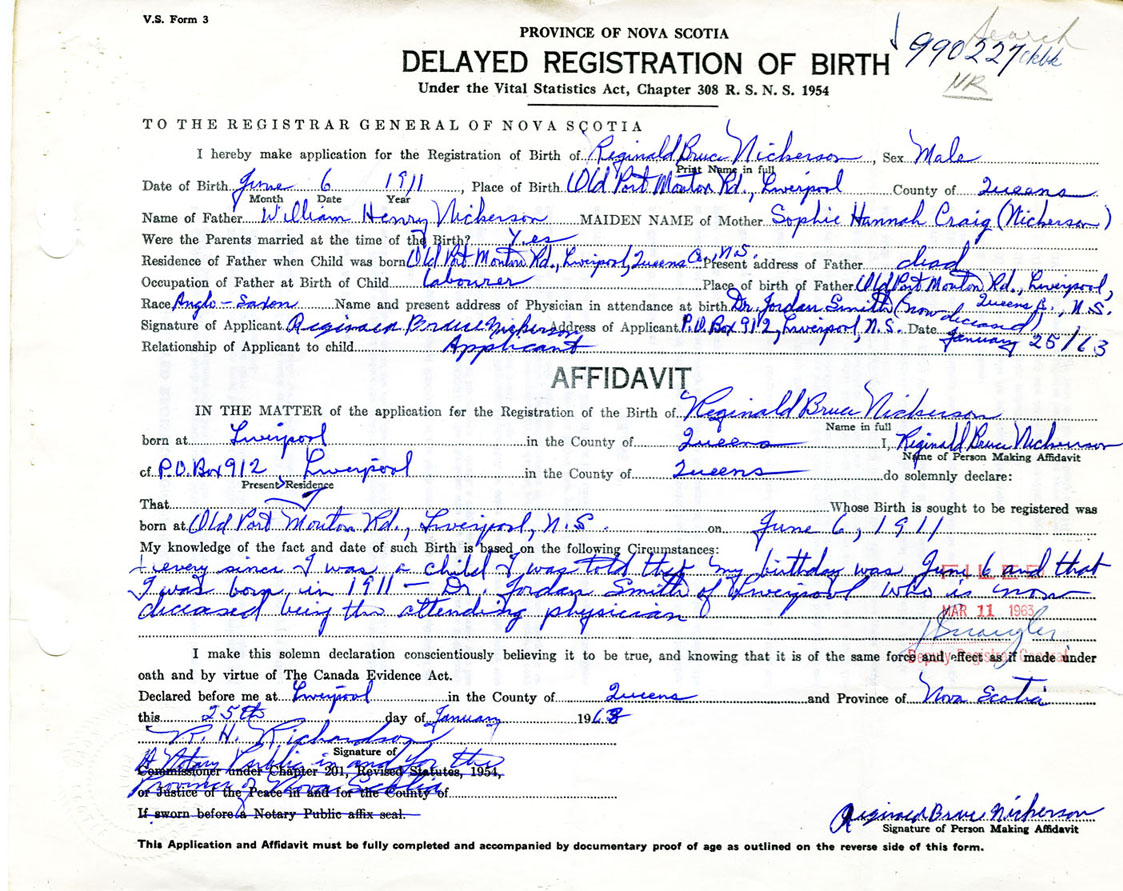 V.S. Form 3
Search
PROVINCE OF NOVA SCOTIA
DELAYED REGISTRATION OF BIRTH
990227
NR
Under the Vital Statistics Act, Chapter 308 R. S. N. S. 1954
TO THE REGISTRAR GENERAL OF NOVA SCOTIA
I hereby make application for the Registration of Birth of Reginald Bruce Nickerson, Sex Male
Print Name in full
Date of Birth June 6 1911, Place of Birth Old Port Mouton Rd., Liverpool County of Queens
Month Date Year
Name of Father William Henry Nickerson MAIDEN NAME of Mother Sophie Hannah Craig (Nickerson)
Were the Parents married at the time of the Birth? Yes
Residence of Father when Child was born Old Port Mouton Rd., Liverpool, Queens Co., N.S. Present address of Father dead
Occupation of Father at Birth of Child Labourer Place of birth of Father Old Port Mouton Rd., Liverpool,
Queens Co., N.S.
Race Anglo-Saxon Name and present address of Physician in attendance at birth Dr. Jordan Smith (now diceased)
Signature of Applicant Reginald Bruce Nickerson Address of Applicant P.O. Box 912, Liverpool, N.S. Date January 25/63
Relationship of Applicant to child Applicant
AFFIDAVIT
IN THE MATTER of the application for the Registration of the Birth of Reginald Bruce Nickerson
Name in full
born at Liverpool in the County of Queens I, Reginald Bruce Nickerson
Name of Person Making Affidavit
of P.O. Box 912 Liverpool in the County of Queens do solemnly declare:
Present Residence
That Whose Birth is sought to be registered was
born at Old Port Mouton Rd., Liverpool, N.S. on June 6, 1911
My knowledge of the fact and date of such Birth is based on the following Circumstances:
every since I was a child I was told that my birthday was June 6 and that
I was born in 1911 — Dr. Jordan Smith of Liverpool who is now
diceased being the attending physician
FILED
MAR 11 1963
Deputy Registrar General
I make this solemn declaration conscientiously believing it to be true, and knowing that it is of the same force and effect as if made under
oath and by virtue of The Canada Evidence Act.
Declared before me at Liverpool in the County of Queens and Province of Nova Scotia
this 25th day of January 1963
R. H. Richardson
Signature of
A Notary Public in and for the
Commissioner under Chapter 201, Revised Statutes, 1954,
Province of Nova Scotia
or Justice of the Peace in and for the County of
If sworn before a Notary Public affix seal.
Reginald Bruce Nickerson
Signature of Person Making Affidavit
This Application and Affidavit must be fully completed and accompanied by documentary proof of age as outlined on the reverse side of this form.